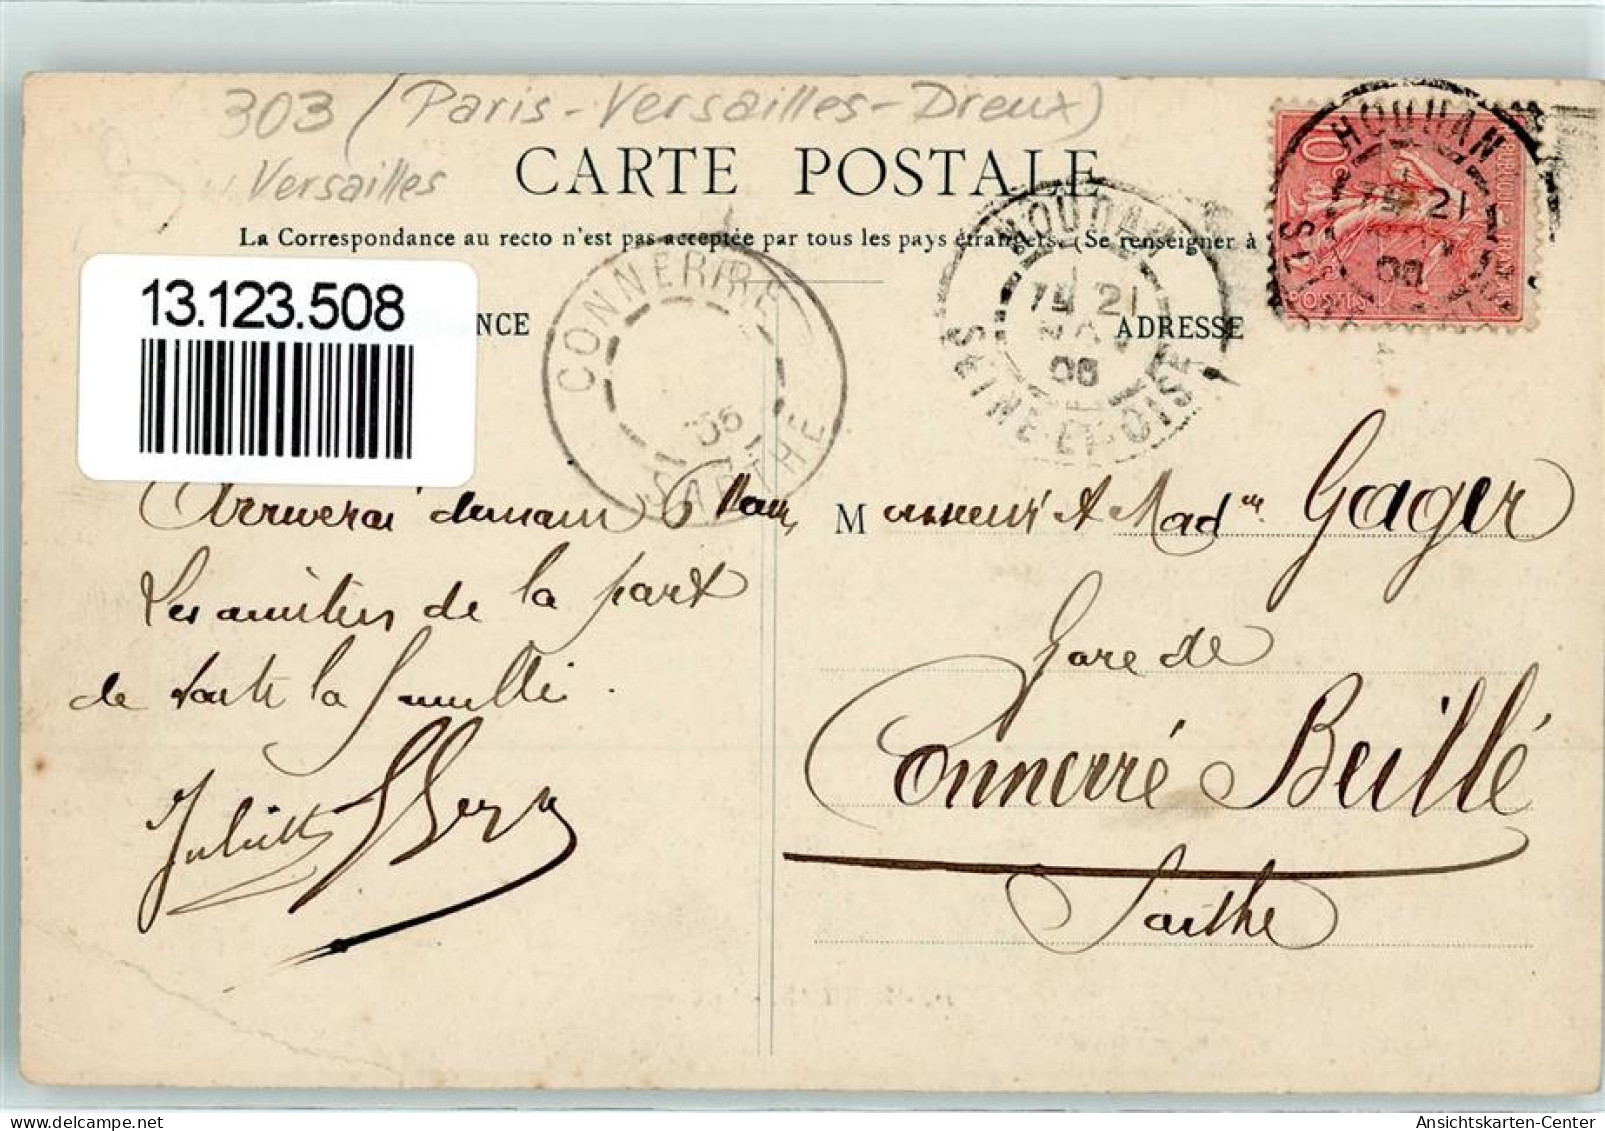 303 (Paris-Versailles-Dreux)
Versailles
CARTE POSTALE
La Correspondance au recto n'est pas acceptée par tous les pays étrangers. (Se renseigner à
13.123.508
NCE
ADRESSE
CONNERRE
06
SARTHE
HOUDAN
21
06
SEINE ET OISE
HOUDAN
21
06
10
POSTES
Arriverai demain 6
Les amitiés de la part
de toute la famille.
Juliette
Monsieur & Madme Gager
Gare de
Connerré Beillé
Sarthe
Ansichtskarten-Center